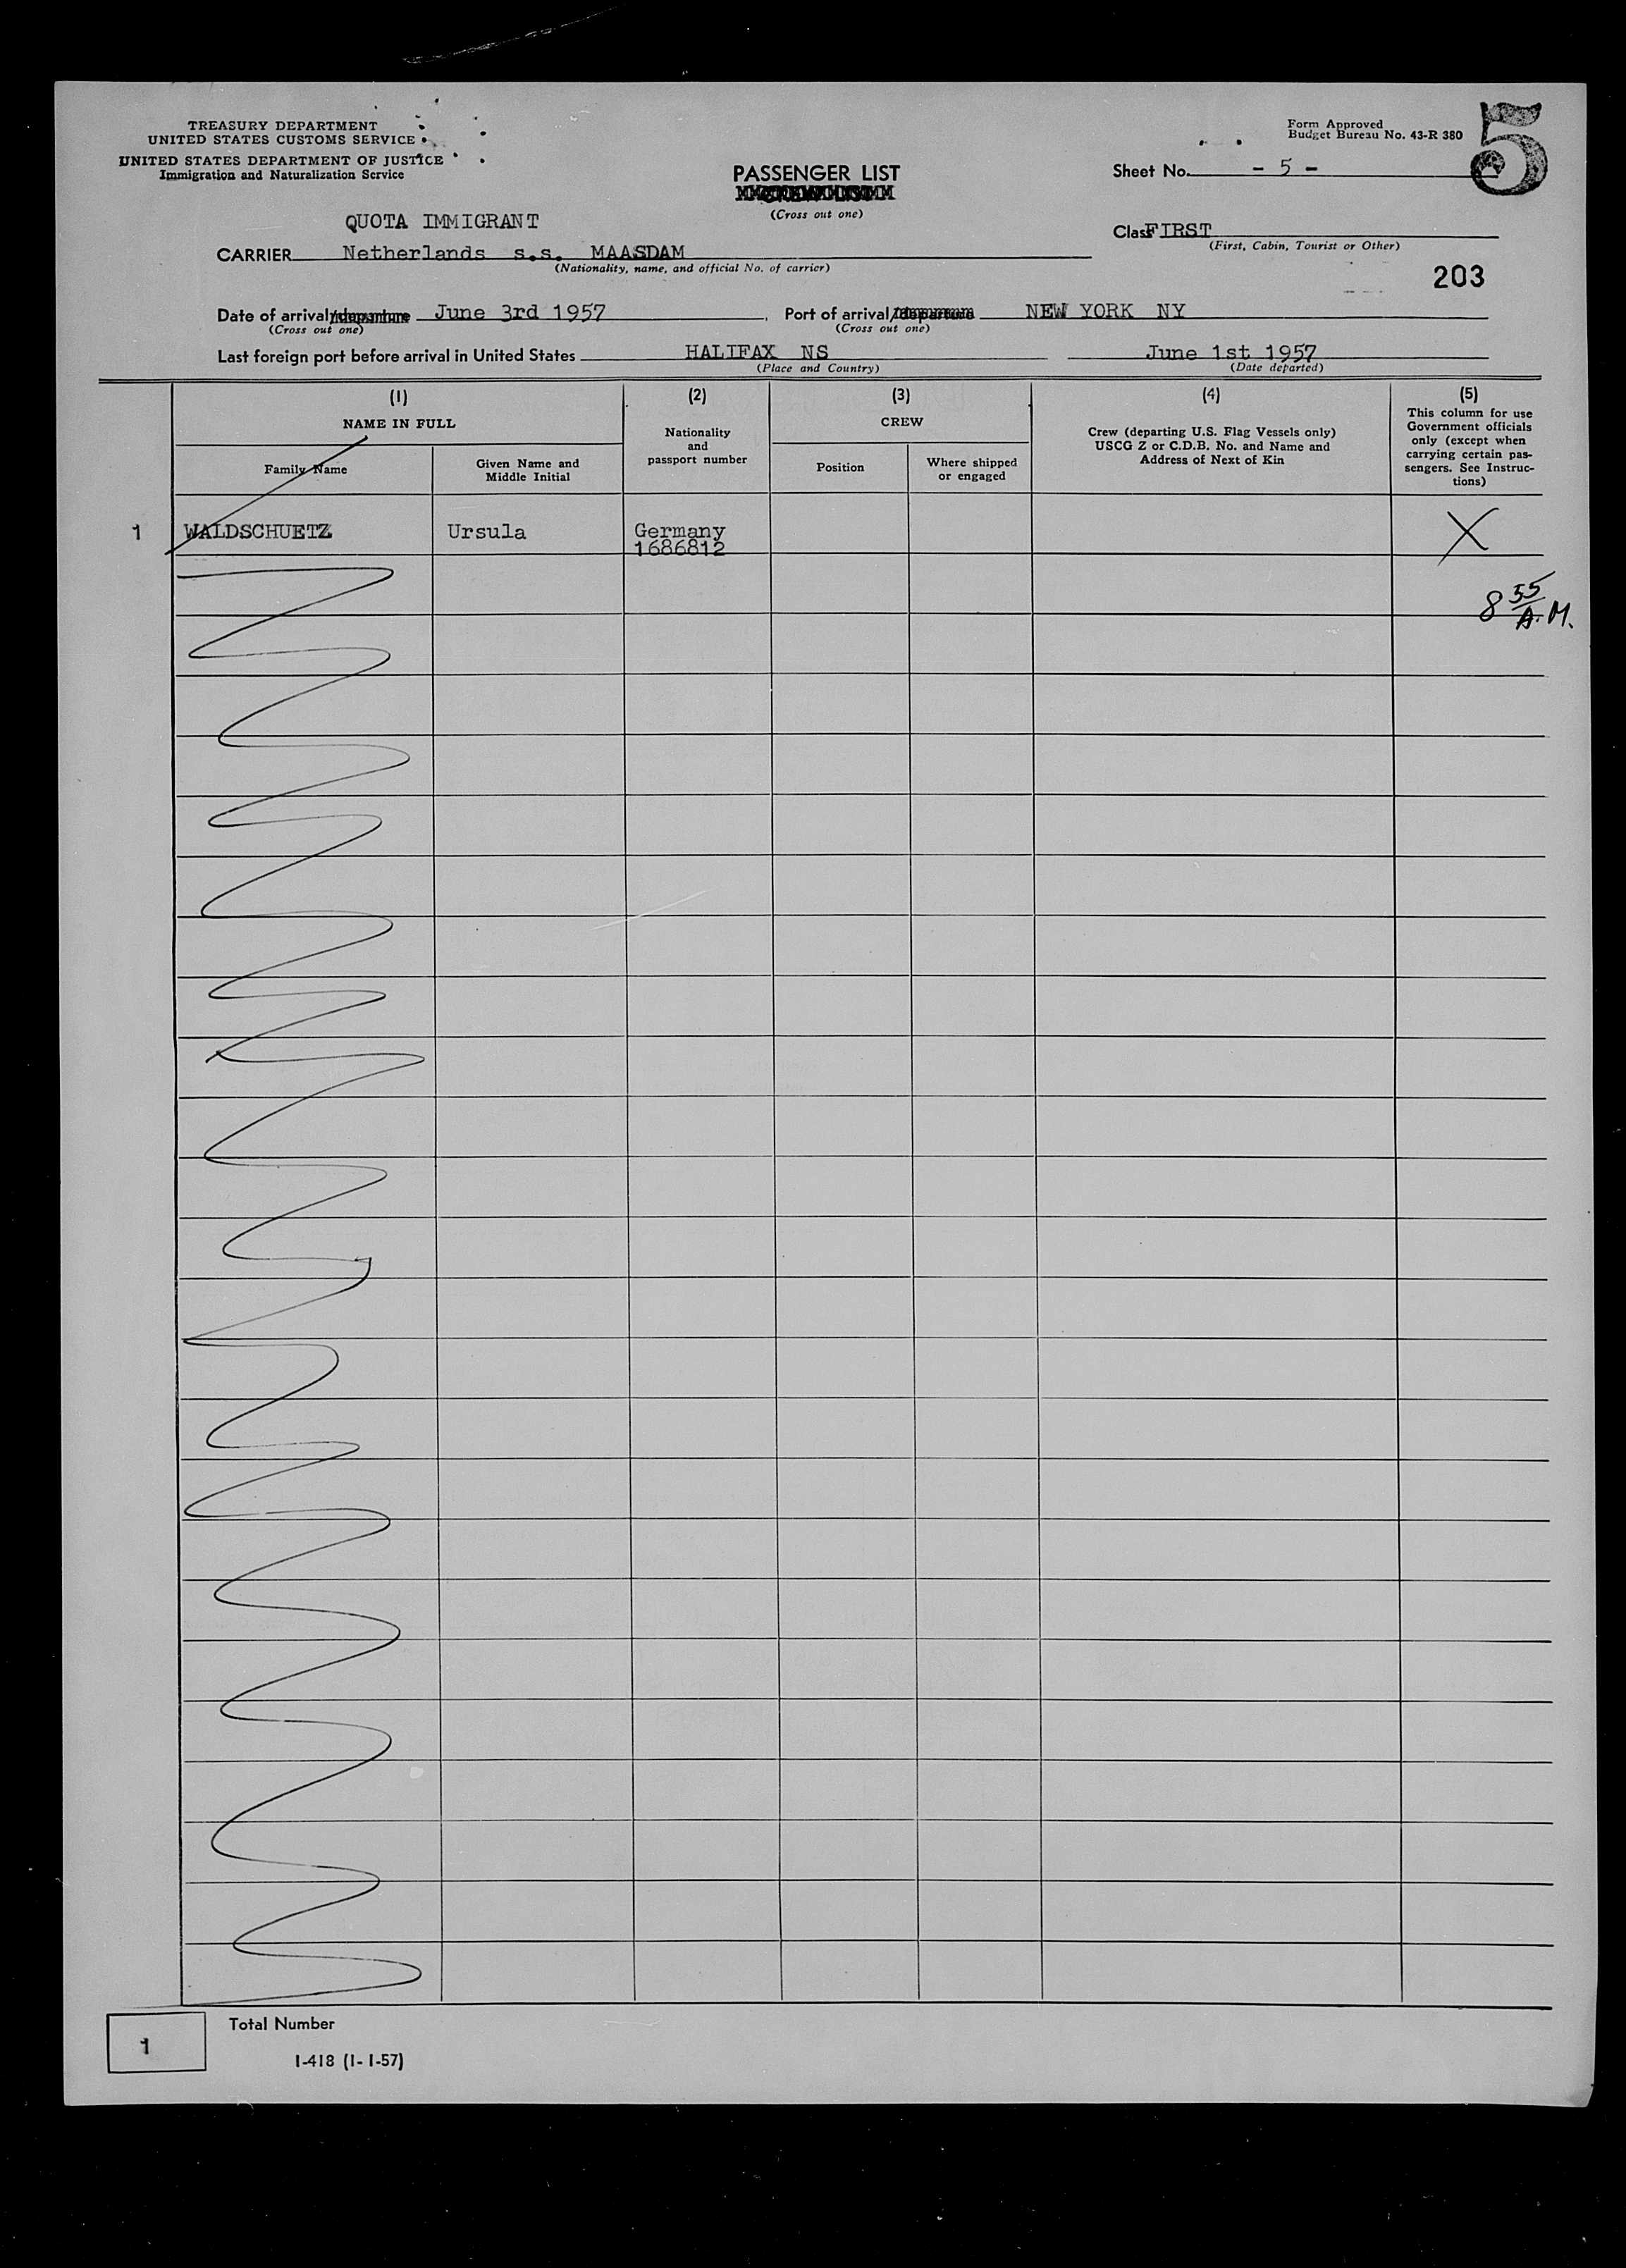 TREASURY DEPARTMENT
UNITED STATES CUSTOMS SERVICE
UNITED STATES DEPARTMENT OF JUSTICE
Immigration and Naturalization Service
Form Approved
Budget Bureau No. 43-R 380
5
PASSENGER LIST
CREW LIST
(Cross out one)
Sheet No. - 5 -
QUOTA IMMIGRANT
Class FIRST
(First, Cabin, Tourist or Other)
CARRIER Netherlands s.s. MAASDAM
(Nationality, name, and official No. of carrier)
203
Date of arrival/departure June 3rd 1957, Port of arrival/departure NEW YORK NY
(Cross out one) (Cross out one)
Last foreign port before arrival in United States HALIFAX NS June 1st 1957
(Place and Country) (Date departed)
(1)
NAME IN FULL
Family Name
Given Name and
Middle Initial
(2)
Nationality
and
passport number
(3)
CREW
Position
Where shipped
or engaged
(4)
Crew (departing U.S. Flag Vessels only)
USCG Z or C.D.B. No. and Name and
Address of Next of Kin
(5)
This column for use
Government officials
only (except when
carrying certain pas-
sengers. See Instruc-
tions)
1 WALDSCHUETZ Ursula Germany X
1686812
8 55 A.M.
1 Total Number
I-418 (1-1-57)